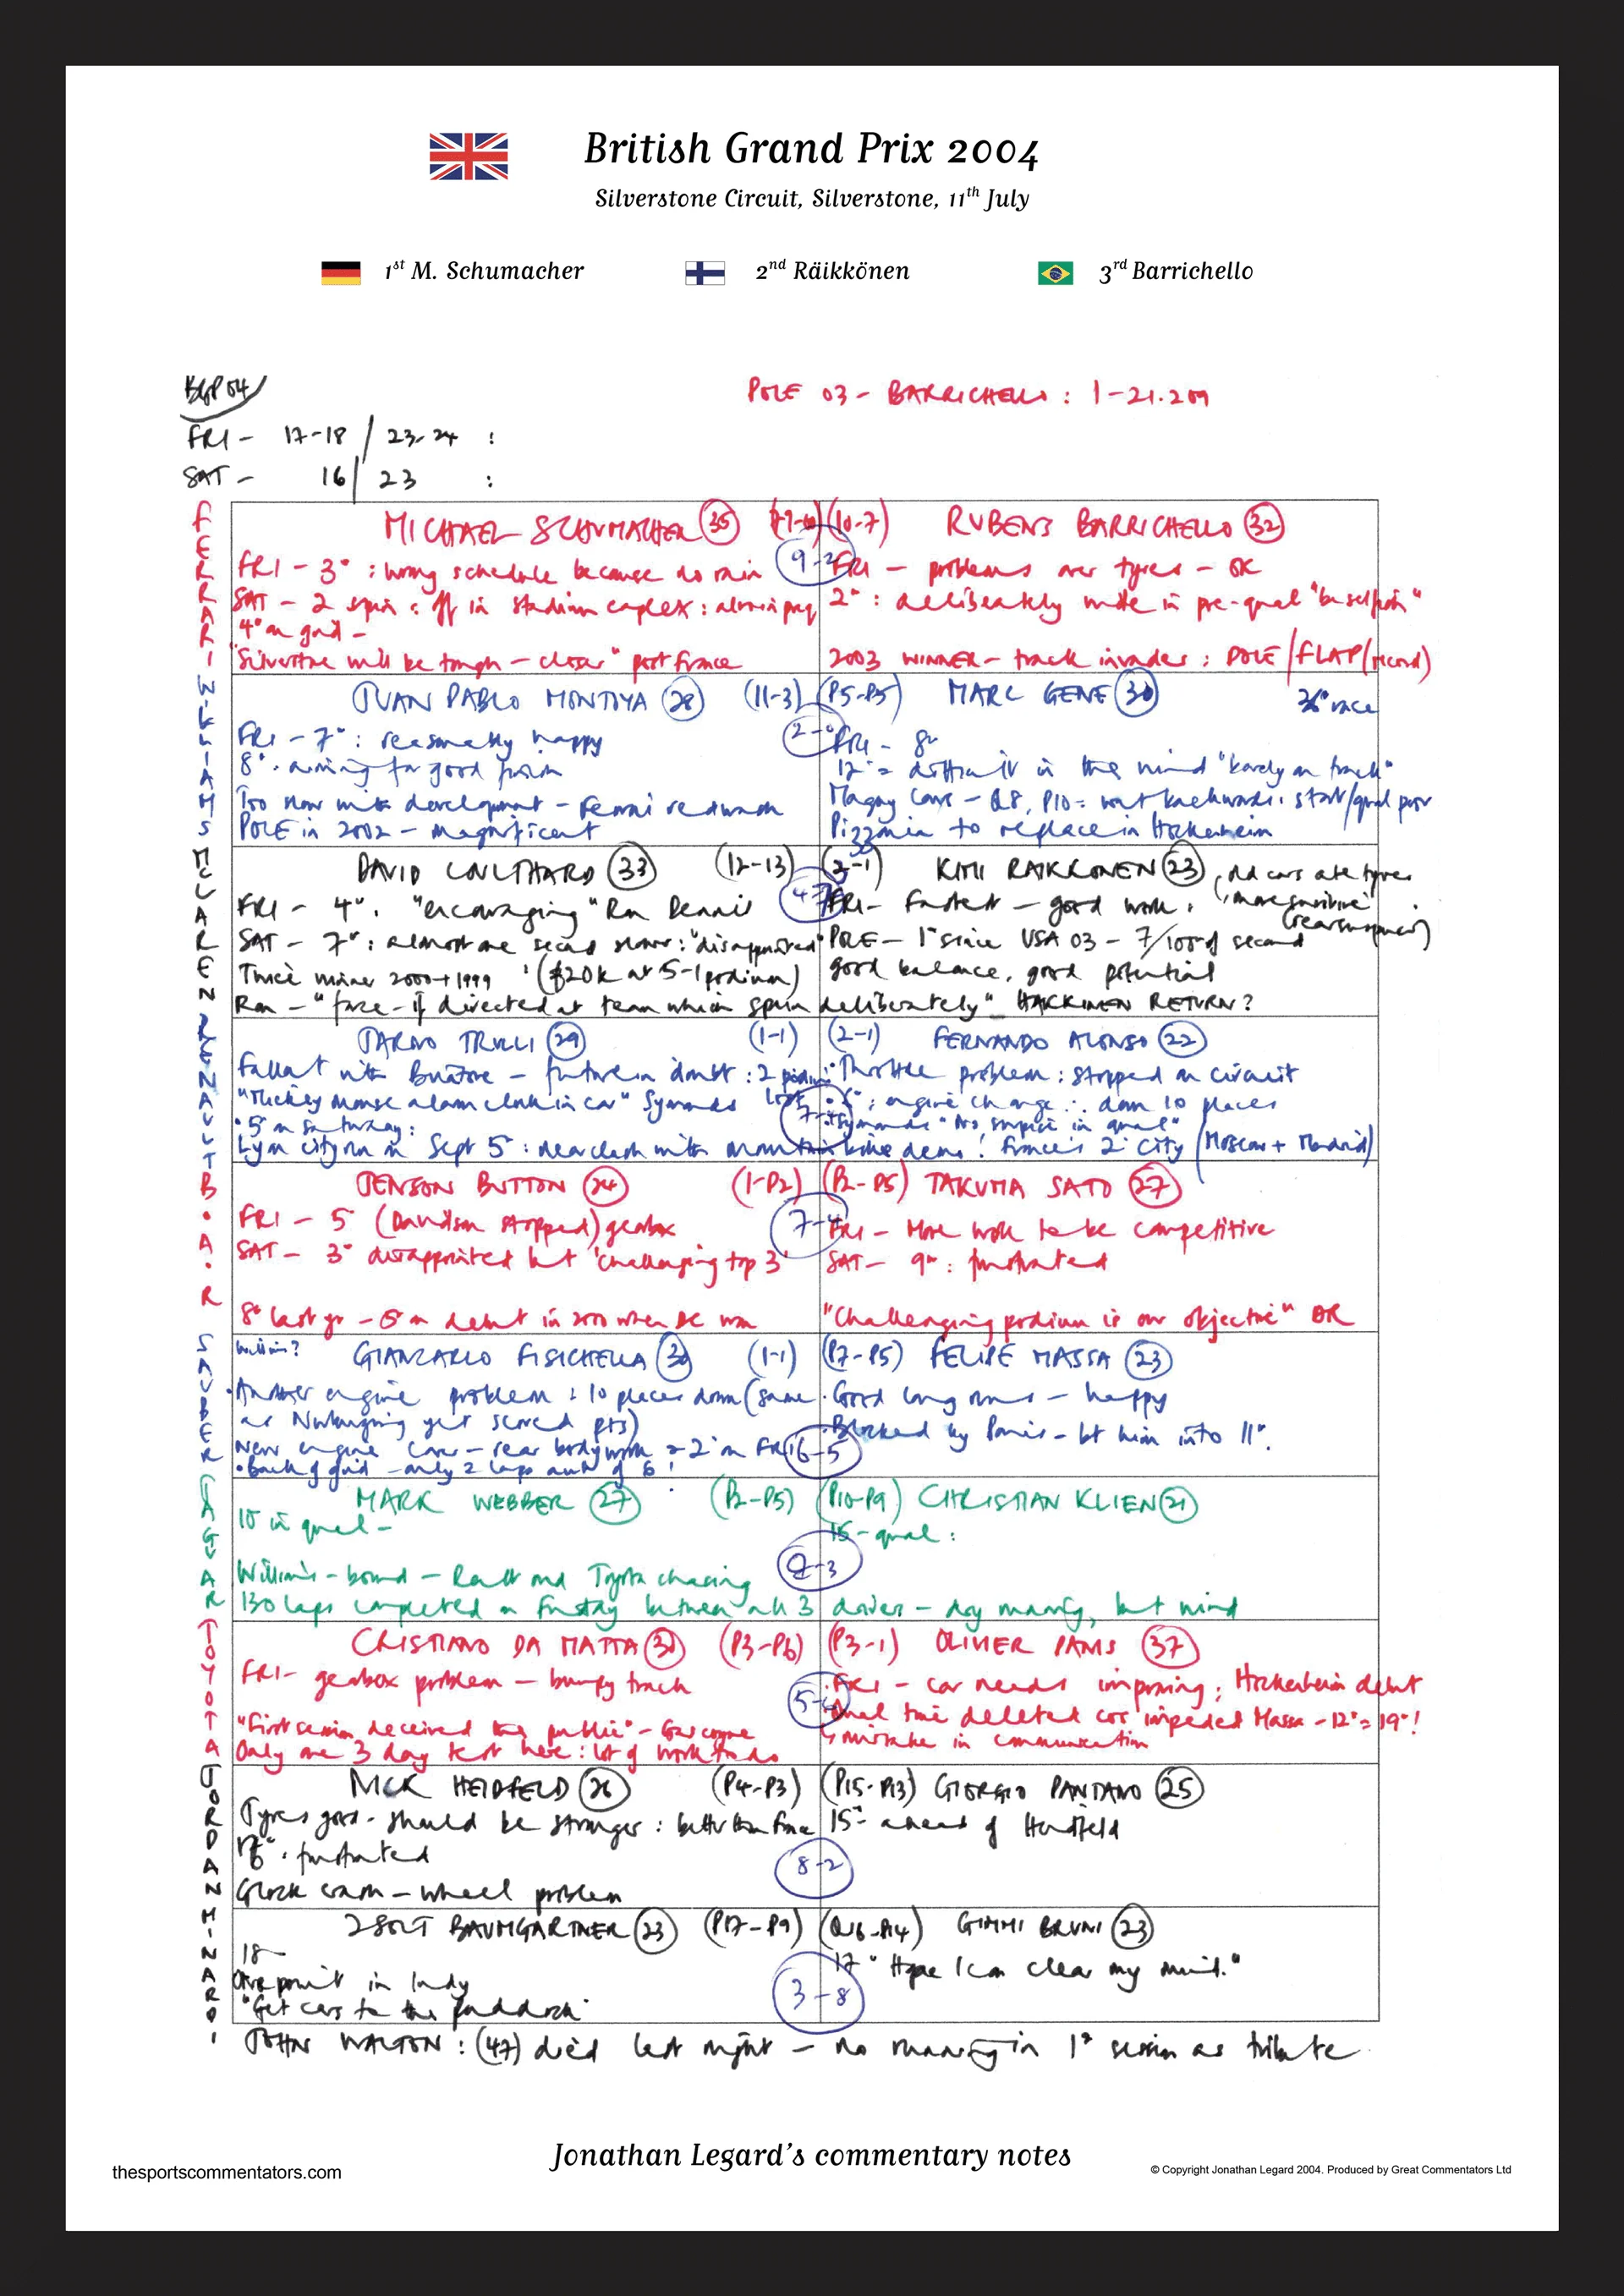 British Grand Prix 2004
Silverstone Circuit, Silverstone, 11th July
1st M. Schumacher
2nd Räikkönen
3rd Barrichello
BGP 04
POLE 03 - BARRICHELLO : 1-21.209
FRI - 17-18 / 23-24 :
SAT - 16 / 23 :
FERRARI
MICHAEL SCHUMACHER 35
(10-7) RUBENS BARRICHELLO 32
FRI - 3° : wrong schedule because no rain
FRI - problems over tyres - OK
SAT - 2 spin : off in stadium complex :
2° : deliberately wide in pre-qual
4° on grid -
"Silverstone will be tough - closer" post France
2003 WINNER - track invader : POLE / FLAP (record)
WILLIAMS
JUAN PABLO MONTOYA 28 (11-3)
(P5-P5) MARC GENE 30
race
FRI - 7° : reasonably happy
FRI - 8°
8° . aiming for good finish
12° = difficult in the wind "barely on track"
Too slow with development - Ferrari
Magny Cours - Q8, P10 = went backwards : start/qual poor
POLE in 2002 - magnificent
Pizzonia to replace in Hockenheim
MCLAREN
DAVID COULTHARD 33 (12-13)
KIMI RAIKKONEN 23 , old cars ate tyres
FRI - 4° . "encouraging" Ron Dennis
FRI - Fastest - good work :
SAT - 7° : almost one second slower : "disappointed"
POLE - 1° since USA 03 - 7/100 of second
Twice winner 2000 + 1999 : ($20k at 5-1 podium)
good balance, good potential
Ron - "farce - if directed at team which spun deliberately" HAKKINEN RETURN?
RENAULT
JARNO TRULLI 29 (1-1)
(2-1) FERNANDO ALONSO 22
Fallout with Briatore - future in doubt : 2
Throttle problem : stopped on circuit
"Mickey Mouse alarm clock in car" Symonds
: engine change ∴ down 10 places
. 5° on Saturday :
Symonds "No surprise in qual"
Lyon city run on Sept 5° : near clash with mountain bike demo ! France's 2° city (Moscow + Madrid)
B.A.R
JENSON BUTTON 24 (1-P2)
(P2-P5) TAKUMA SATO 27
7-4
FRI - 5 (Davidson stopped) gearbox
FRI - More work to be competitive
SAT - 3° disappointed but 'challenging top 3'
SAT - 9° : frustrated
8° last yr - 5° on debut in 2000 when DC won
"Challenging podium is our objective" DR
SAUBER
Williams?
GIANCARLO FISICHELLA 30 (1-1)
(P7-P5) FELIPE MASSA 23
. Another engine problem : 10 places down (same
. Good long runs - happy
as Nurburgring yet scored pts)
. Blocked by Panis - let him into 11°.
New engine cover - rear bodywork = 2° on FRI
6-5
. Back of grid - only 2 laps out of 6 !
JAGUAR
MARK WEBBER 27 (P2-P5)
(P10-P9) CHRISTIAN KLIEN 21
10 in qual -
15 - qual :
Williams - bound - Renault and Toyota chasing
130 laps completed on Friday between all 3 drivers - dry mainly, but wind
TOYOTA
CRISTIANO DA MATTA 30 (P3-P6)
(P3-1) OLIVIER PANIS 37
FRI - gearbox problem - bumpy track
. FRI - car needs improving ; Hockenheim debut
"First session deceived the public" - Gascoyne
Qual time deleted cos impeded Massa - 12° = 19° !
Only one 3 day test here : lot of work to do
mistake in communication
JORDAN
NICK HEIDFELD 26 (P4-P3)
(P15-P13) GIORGIO PANTANO 25
Tyres good - should be stronger : better than France
15° - ahead of Heidfeld
. frustrated
8-2
Glock crash - wheel problem
MINARDI
ZSOLT BAUMGARTNER 23 (P17-P9)
(Q16-P14) GIMMI BRUNI 23
18
17 "Hope I can clear my mind."
One point in Indy
3-8
"Get cars to the paddock"
JOHN WALTON : (47) died last night - no running in 1° session as tribute
Jonathan Legard's commentary notes
thesportscommentators.com
© Copyright Jonathan Legard 2004. Produced by Great Commentators Ltd